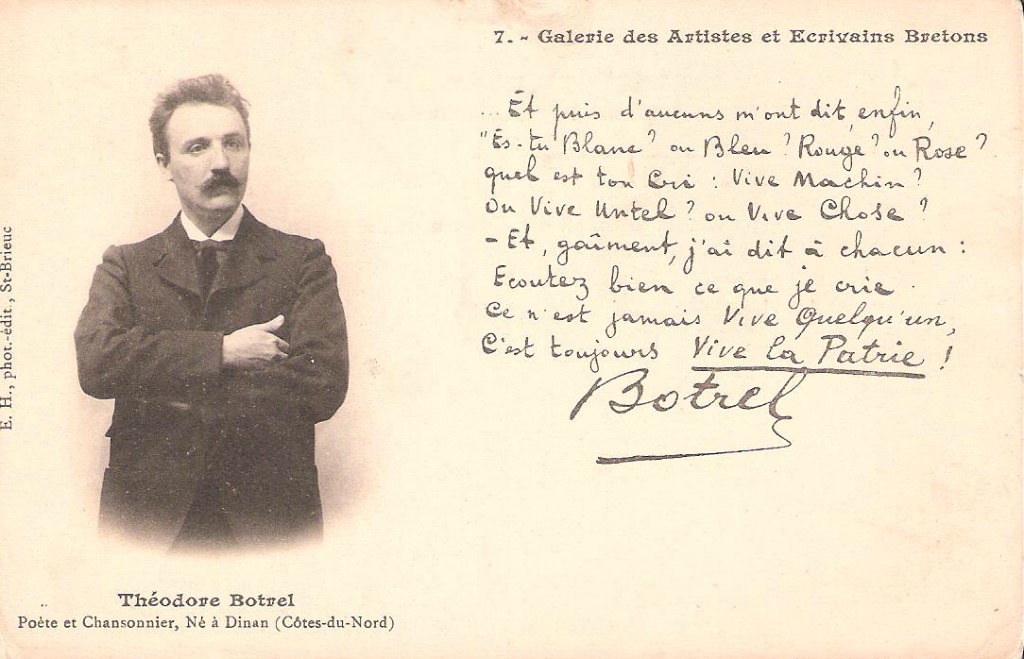 7. - Galerie des Artistes et Ecrivains Bretons
... Et puis d'aucuns m'ont dit, enfin,
"Es-tu Blanc? ou Bleu? Rouge? ou Rose?
quel est ton Cri : Vive Machin?
Ou Vive Untel? ou Vive Chose?
- Et, gaîment, j'ai dit à chacun :
Ecoutez bien ce que je crie.
Ce n'est jamais Vive Quelqu'un,
C'est toujours Vive la Patrie!
Botrel
E. H., phot.-édit., St-Brieuc
Théodore Botrel
Poète et Chansonnier, Né à Dinan (Côtes-du-Nord)